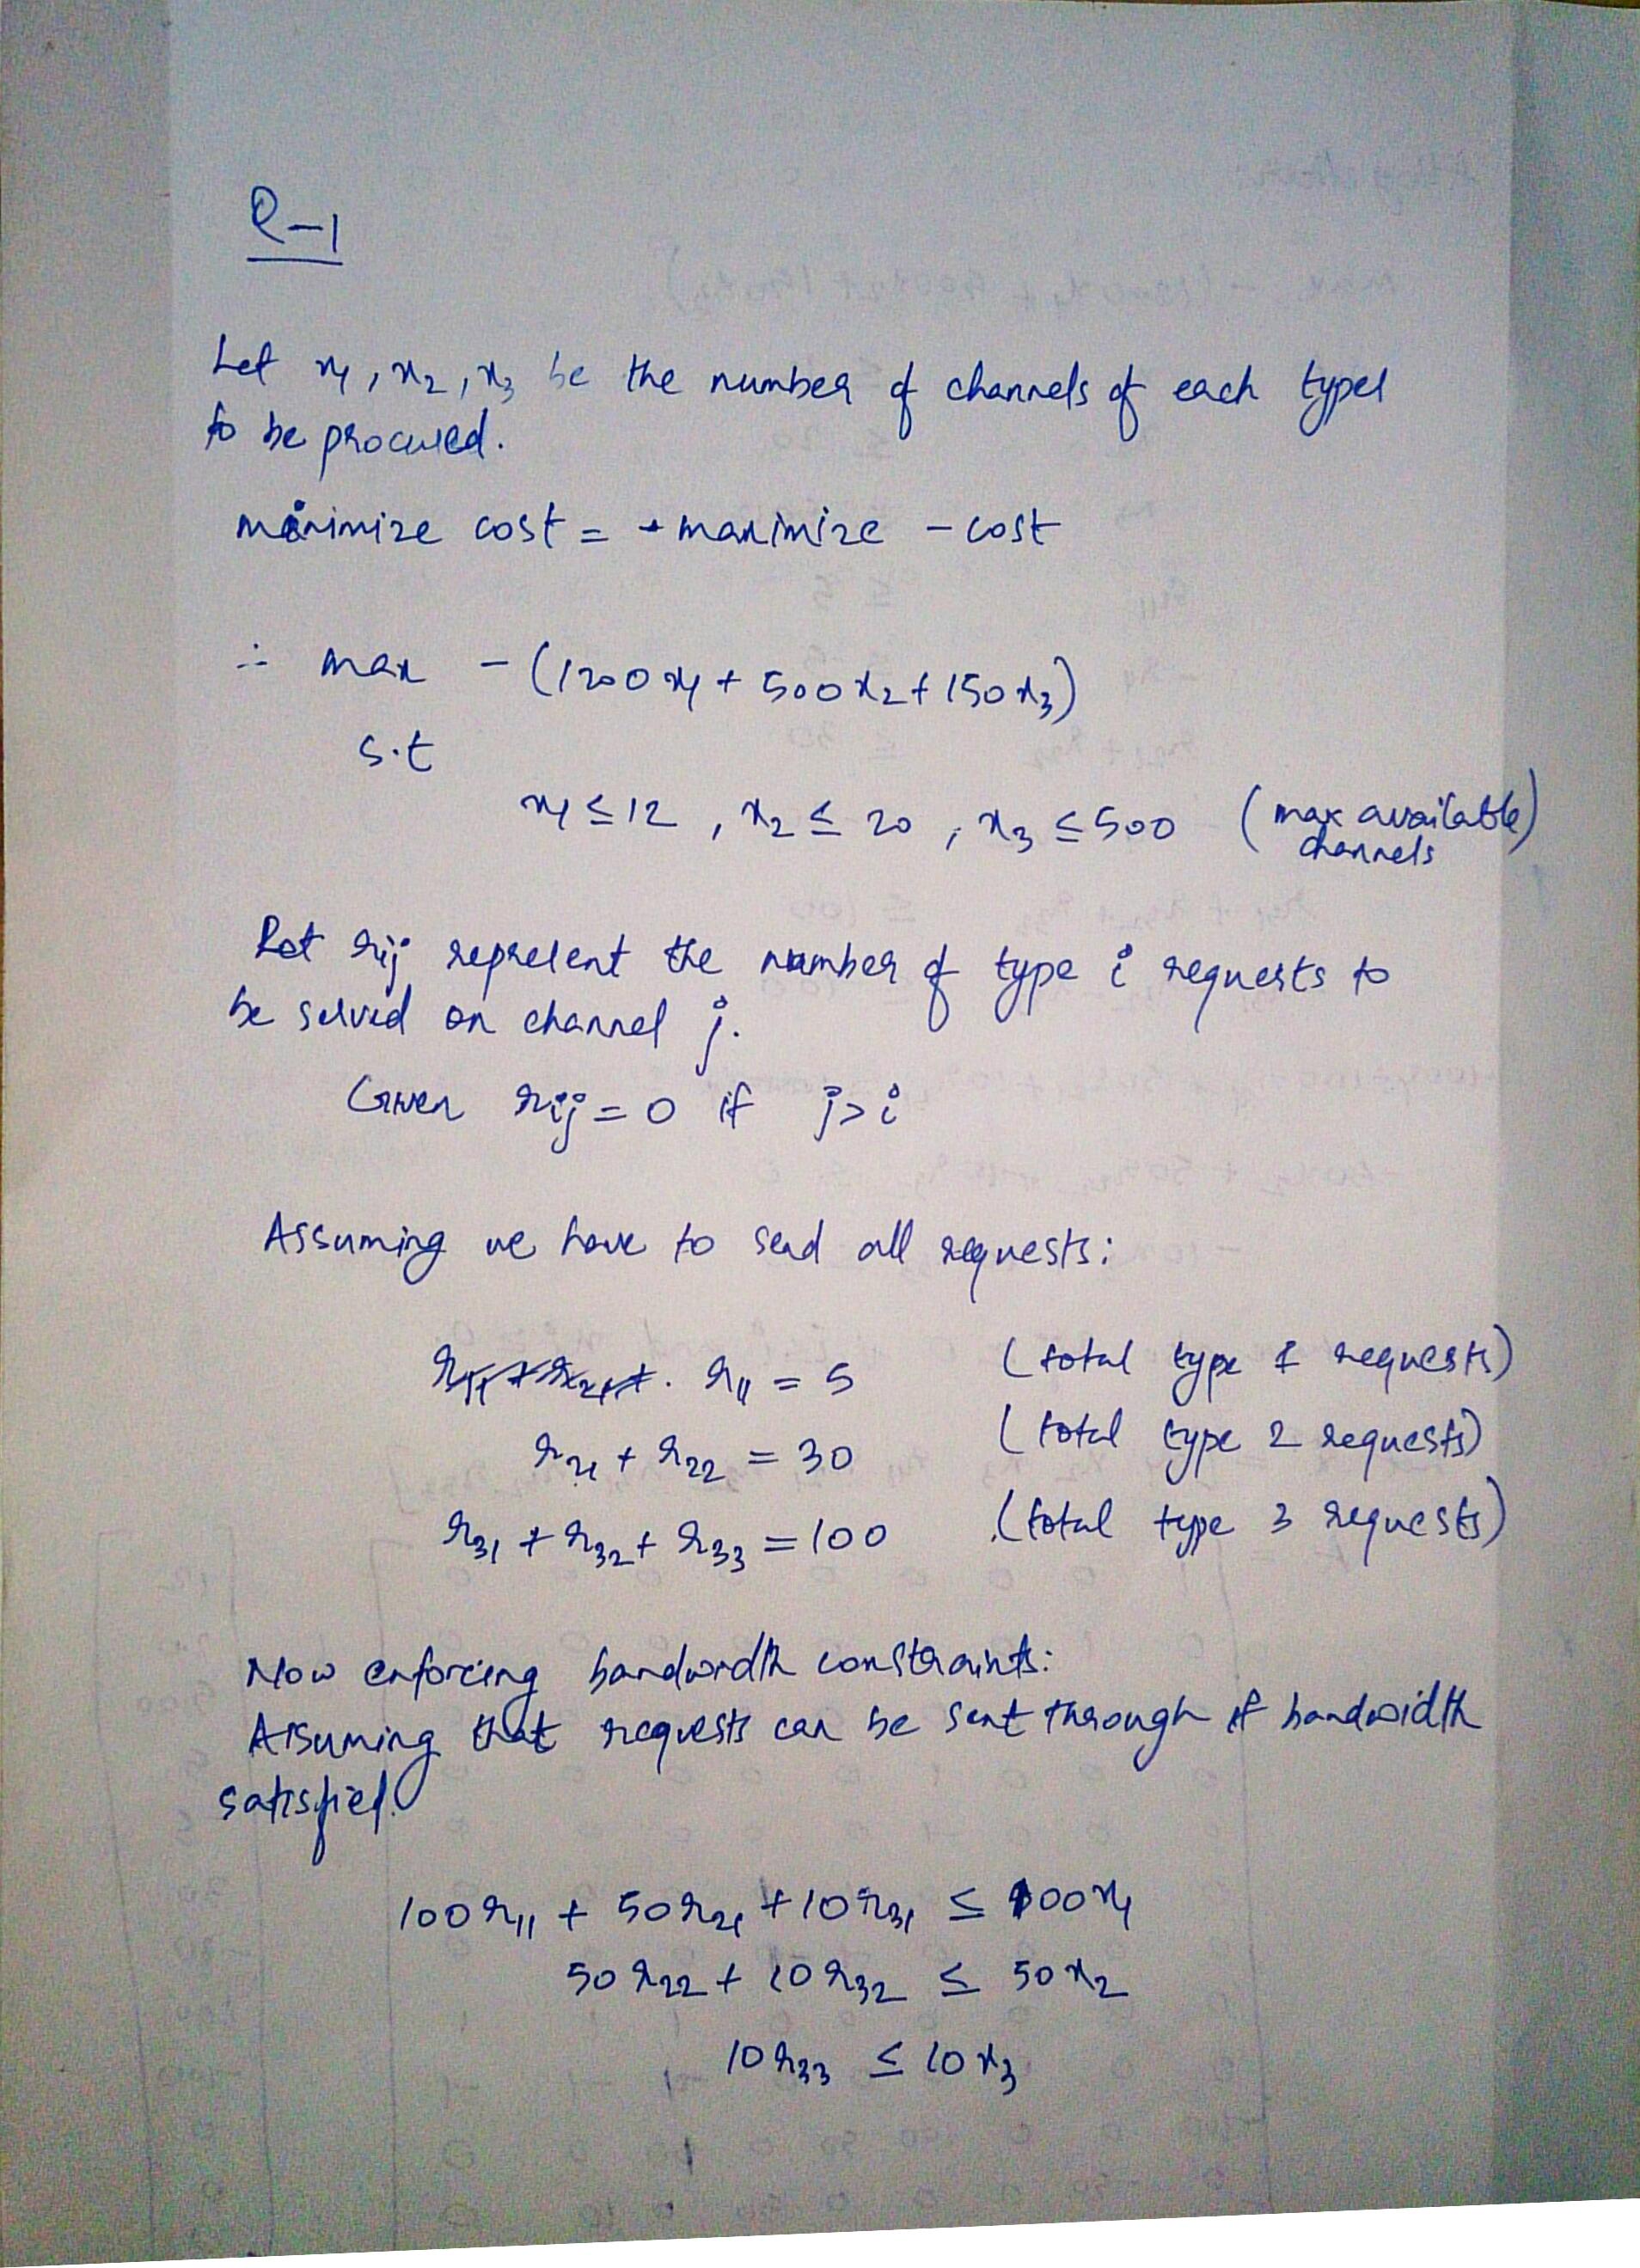 Q-1
Let x₁, x₂, x₃ be the number of channels of each types
to be procured.
minimize cost = maximize - cost
∴ max - (1200x₁ + 500x₂ + 150x₃)
s.t
x₁ ≤ 12 , x₂ ≤ 20 , x₃ ≤ 500 (max available channels)
Let rij represent the number of type i requests to
be served on channel j.
Given rij = 0 if j > i
Assuming we have to send all requests:
r₁₁ = 5 (total type 1 requests)
r₂₁ + r₂₂ = 30 (total type 2 requests)
r₃₁ + r₃₂ + r₃₃ = 100 (total type 3 requests)
Now enforcing bandwidth constraints:
Assuming that requests can be sent through if bandwidth
satisfied.
100r₁₁ + 50r₂₁ + 10r₃₁ ≤ 100x₁
50r₂₂ + 10r₃₂ ≤ 50x₂
10r₃₃ ≤ 10x₃